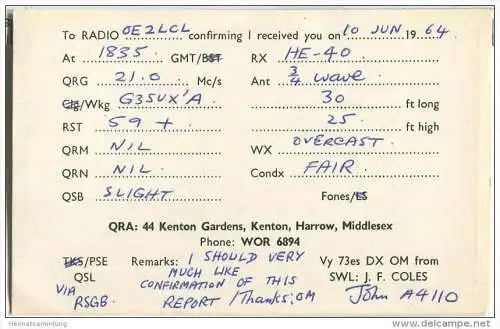 To RADIO OE2LCL confirming I received you on 10 JUN 1964
At 1835 GMT/BST RX HE-40
QRG 21.0 Mc/s Ant 3/4 wave
Clg/Wkg G3SUX'A 30 ft long
RST 59 + 25 ft high
QRM NIL WX OVERCAST
QRN NIL Condx FAIR
QSB SLIGHT Fones/LS
QRA: 44 Kenton Gardens, Kenton, Harrow, Middlesex
Phone: WOR 6894
TKS/PSE Remarks: I SHOULD VERY Vy 73es DX OM from
QSL MUCH LIKE SWL: J. F. COLES
VIA CONFIRMATION OF THIS
RSGB. REPORT/Thanks; OM John A4110
Heimatsammlung
delcampe.net